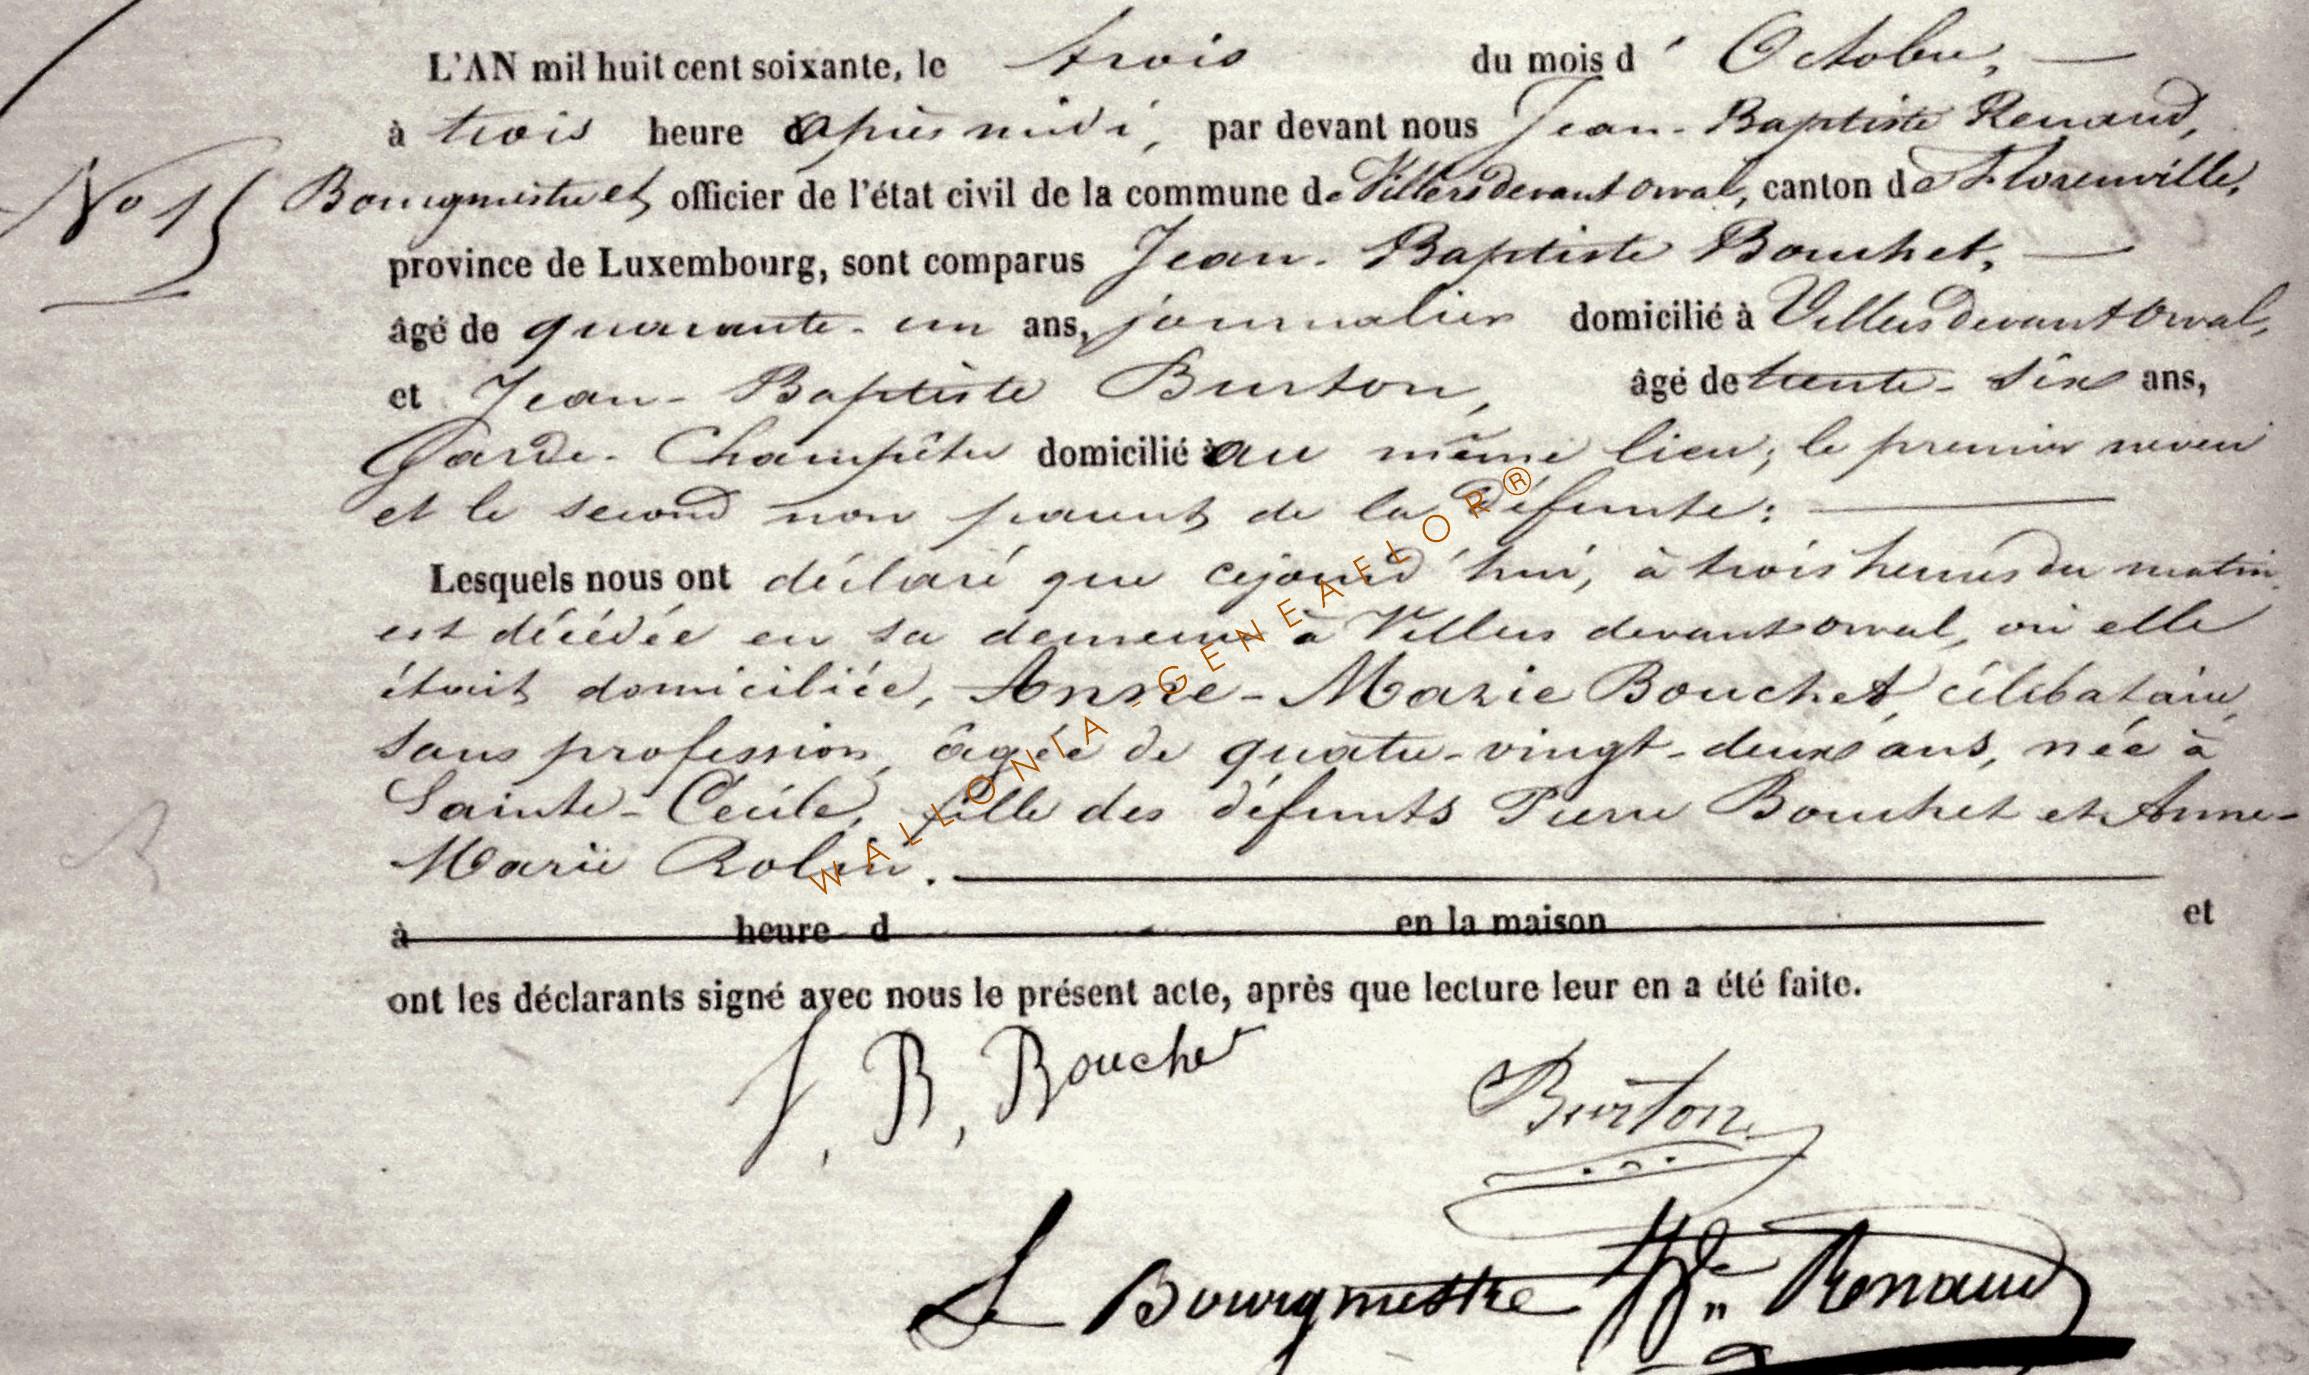 L'AN mil huit cent soixante, le trois du mois d' Octobre,
à trois heure après midi, par devant nous Jean-Baptiste Renaud,
No 15 Bourgmestre et officier de l'état civil de la commune de Villers devant Orval, canton de Florenville,
province de Luxembourg, sont comparus Jean-Baptiste Bouchet,
âgé de quarante-un ans, journalier domicilié à Villers devant Orval,
et Jean-Baptiste Burton, âgé de trente-six ans,
Garde-Champêtre domicilié au même lieu; le premier neveu
et le second non parent de la défunte:
Lesquels nous ont déclaré que cejourd'hui, à trois heures du matin,
est décédée en sa demeure à Villers devant orval, où elle
était domiciliée, Anne-Marie Bouchet, célibataire,
sans profession, âgée de quatre-vingt-deux ans, née à
Sainte-Cécile, fille des défunts Pierre Bouchet et Anne-
Marie Robin.
à heure d en la maison et
ont les déclarants signé avec nous le présent acte, après que lecture leur en a été faite.
J, B, Bouchet
Burton
Le Bourgmestre Renaud
WALLONIA-GENEAFLOR®